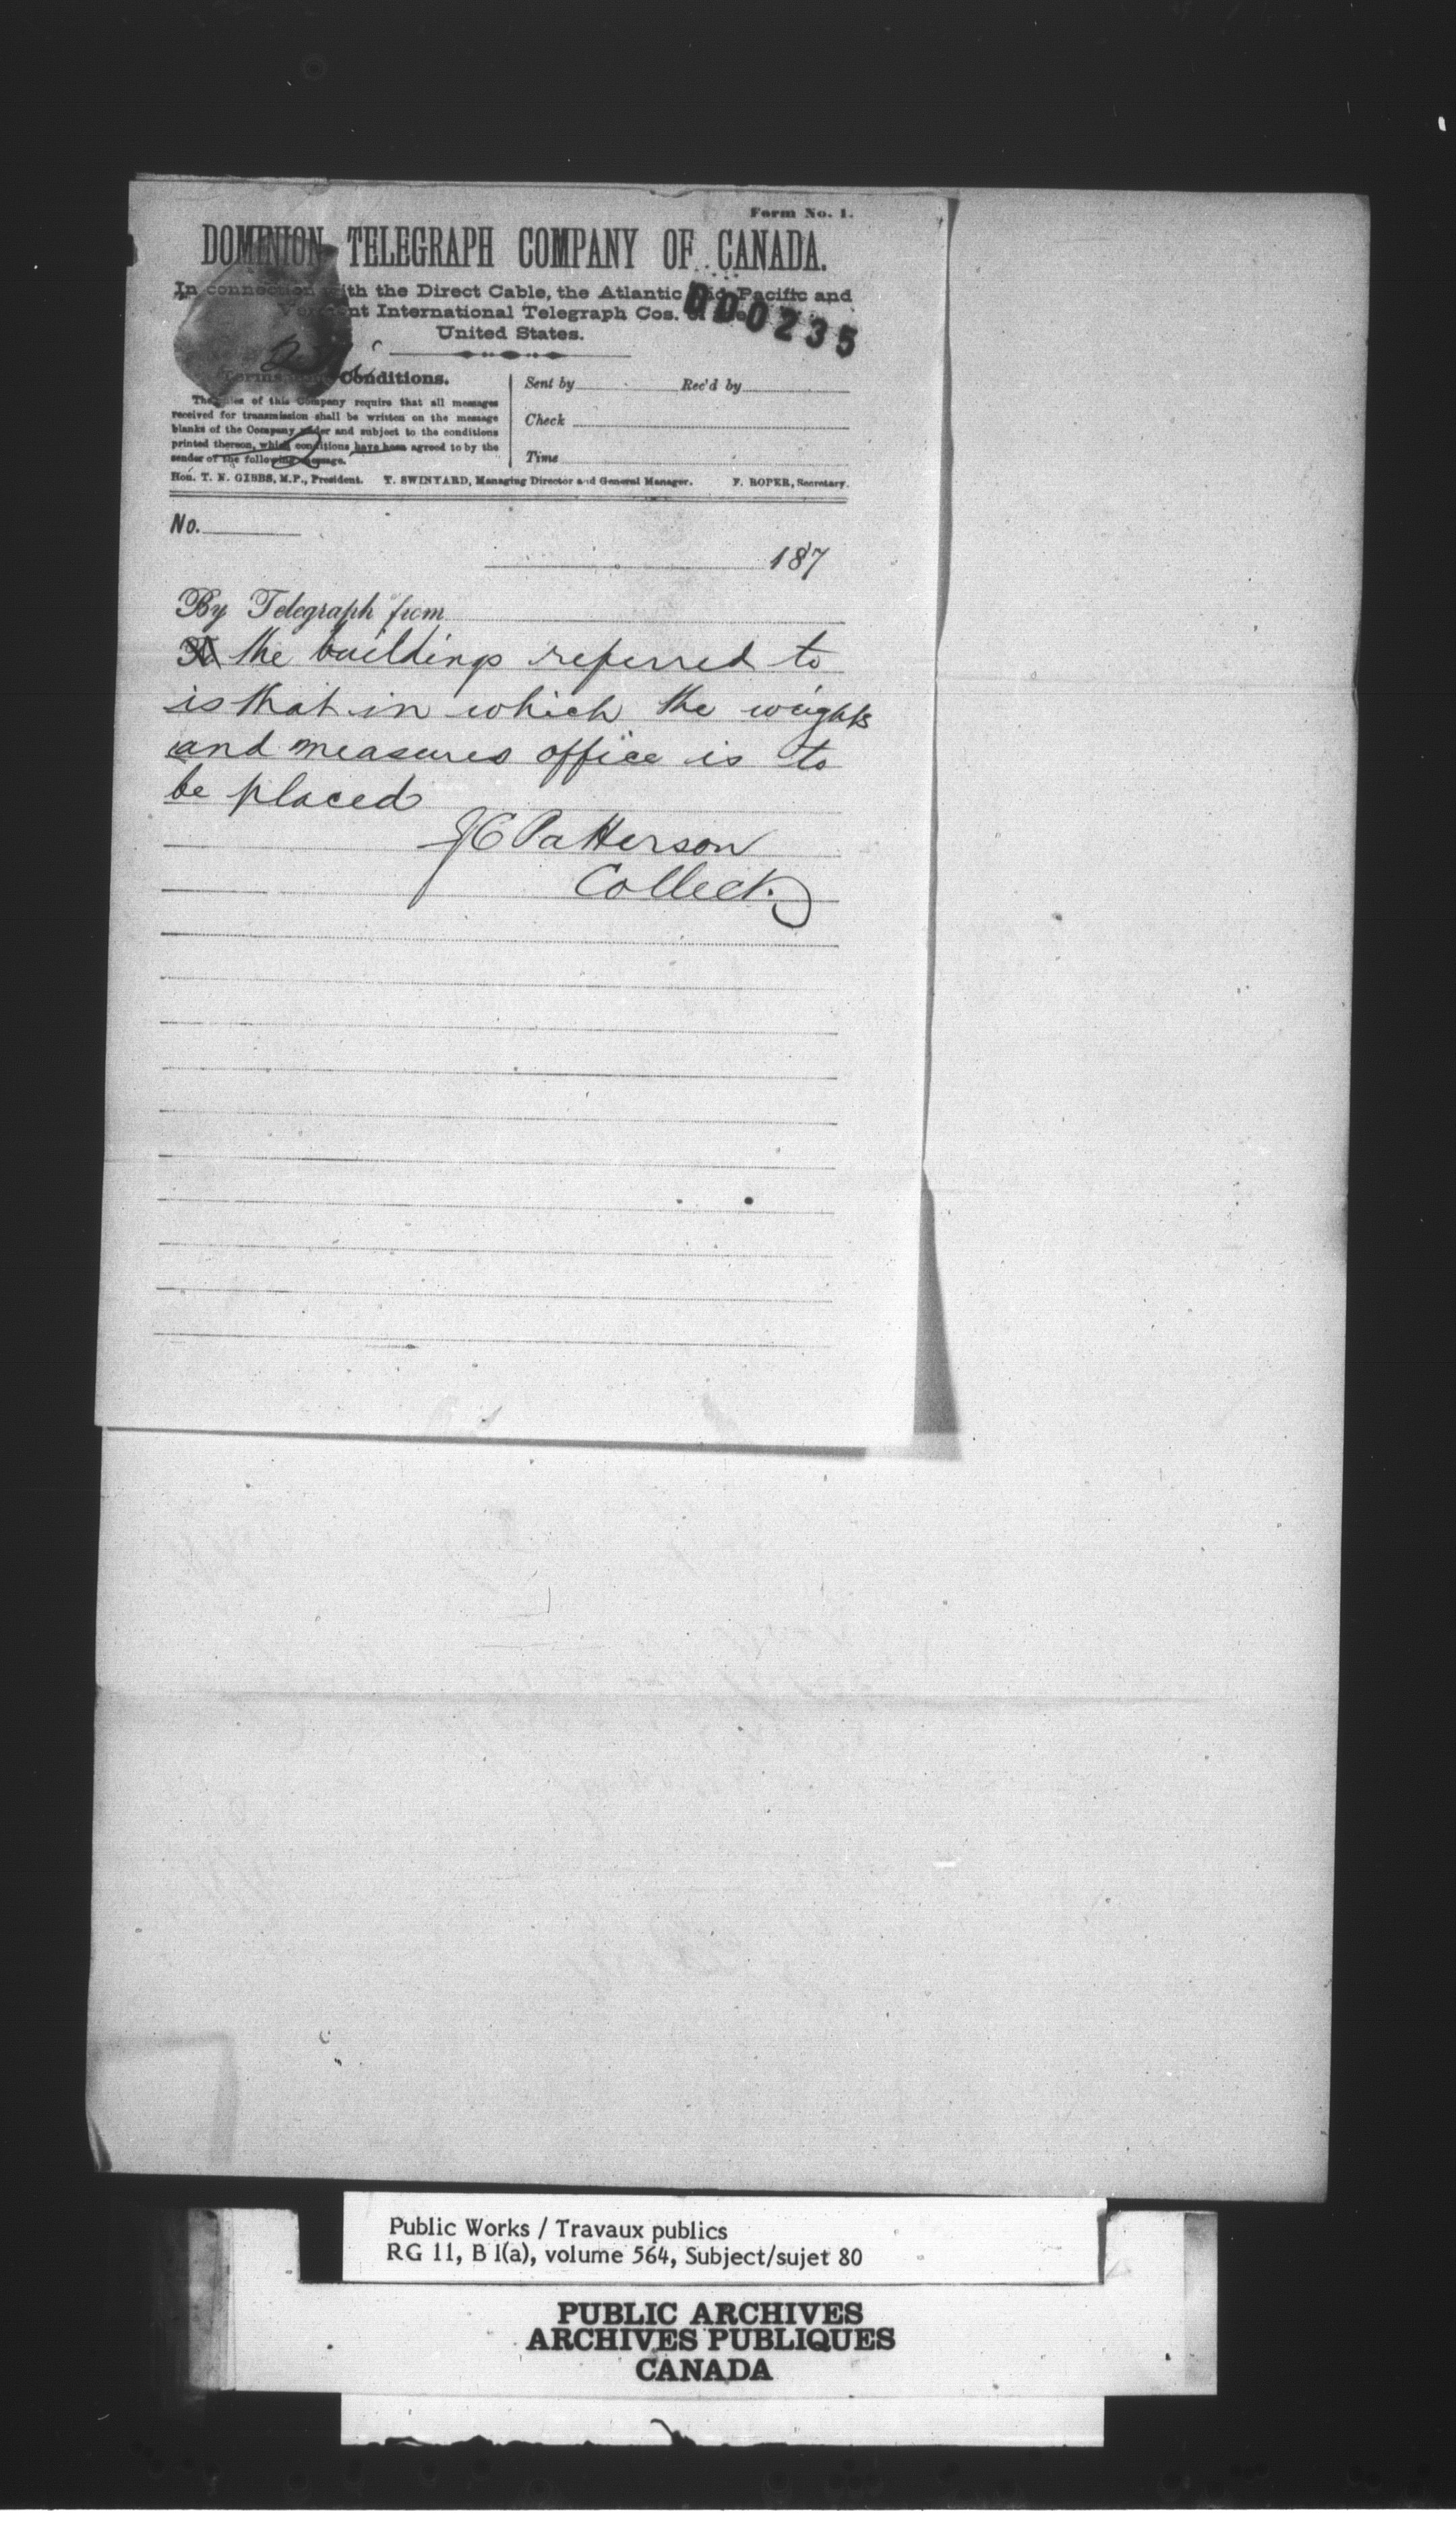 Form No. 1.
DOMINION TELEGRAPH COMPANY OF CANADA.
In connection with the Direct Cable, the Atlantic and Pacific and
Vermont International Telegraph Cos. of the
United States.
000235
Terms and Conditions.
The rules of this Company require that all messages
received for transmission shall be written on the message
blanks of the Company under and subject to the conditions
printed thereon, which conditions have been agreed to by the
sender of the following message.
Sent by Rec'd by
Check
Time
Hon. T. N. GIBBS, M.P., President. T. SWINYARD, Managing Director and General Manager. F. ROPER, Secretary.
No.
187
By Telegraph from
To the buildings referred to
is that in which the weights
and measures office is to
be placed
J C Patterson
Collect.
Public Works / Travaux publics
RG 11, B 1(a), volume 564, Subject/sujet 80
PUBLIC ARCHIVES
ARCHIVES PUBLIQUES
CANADA